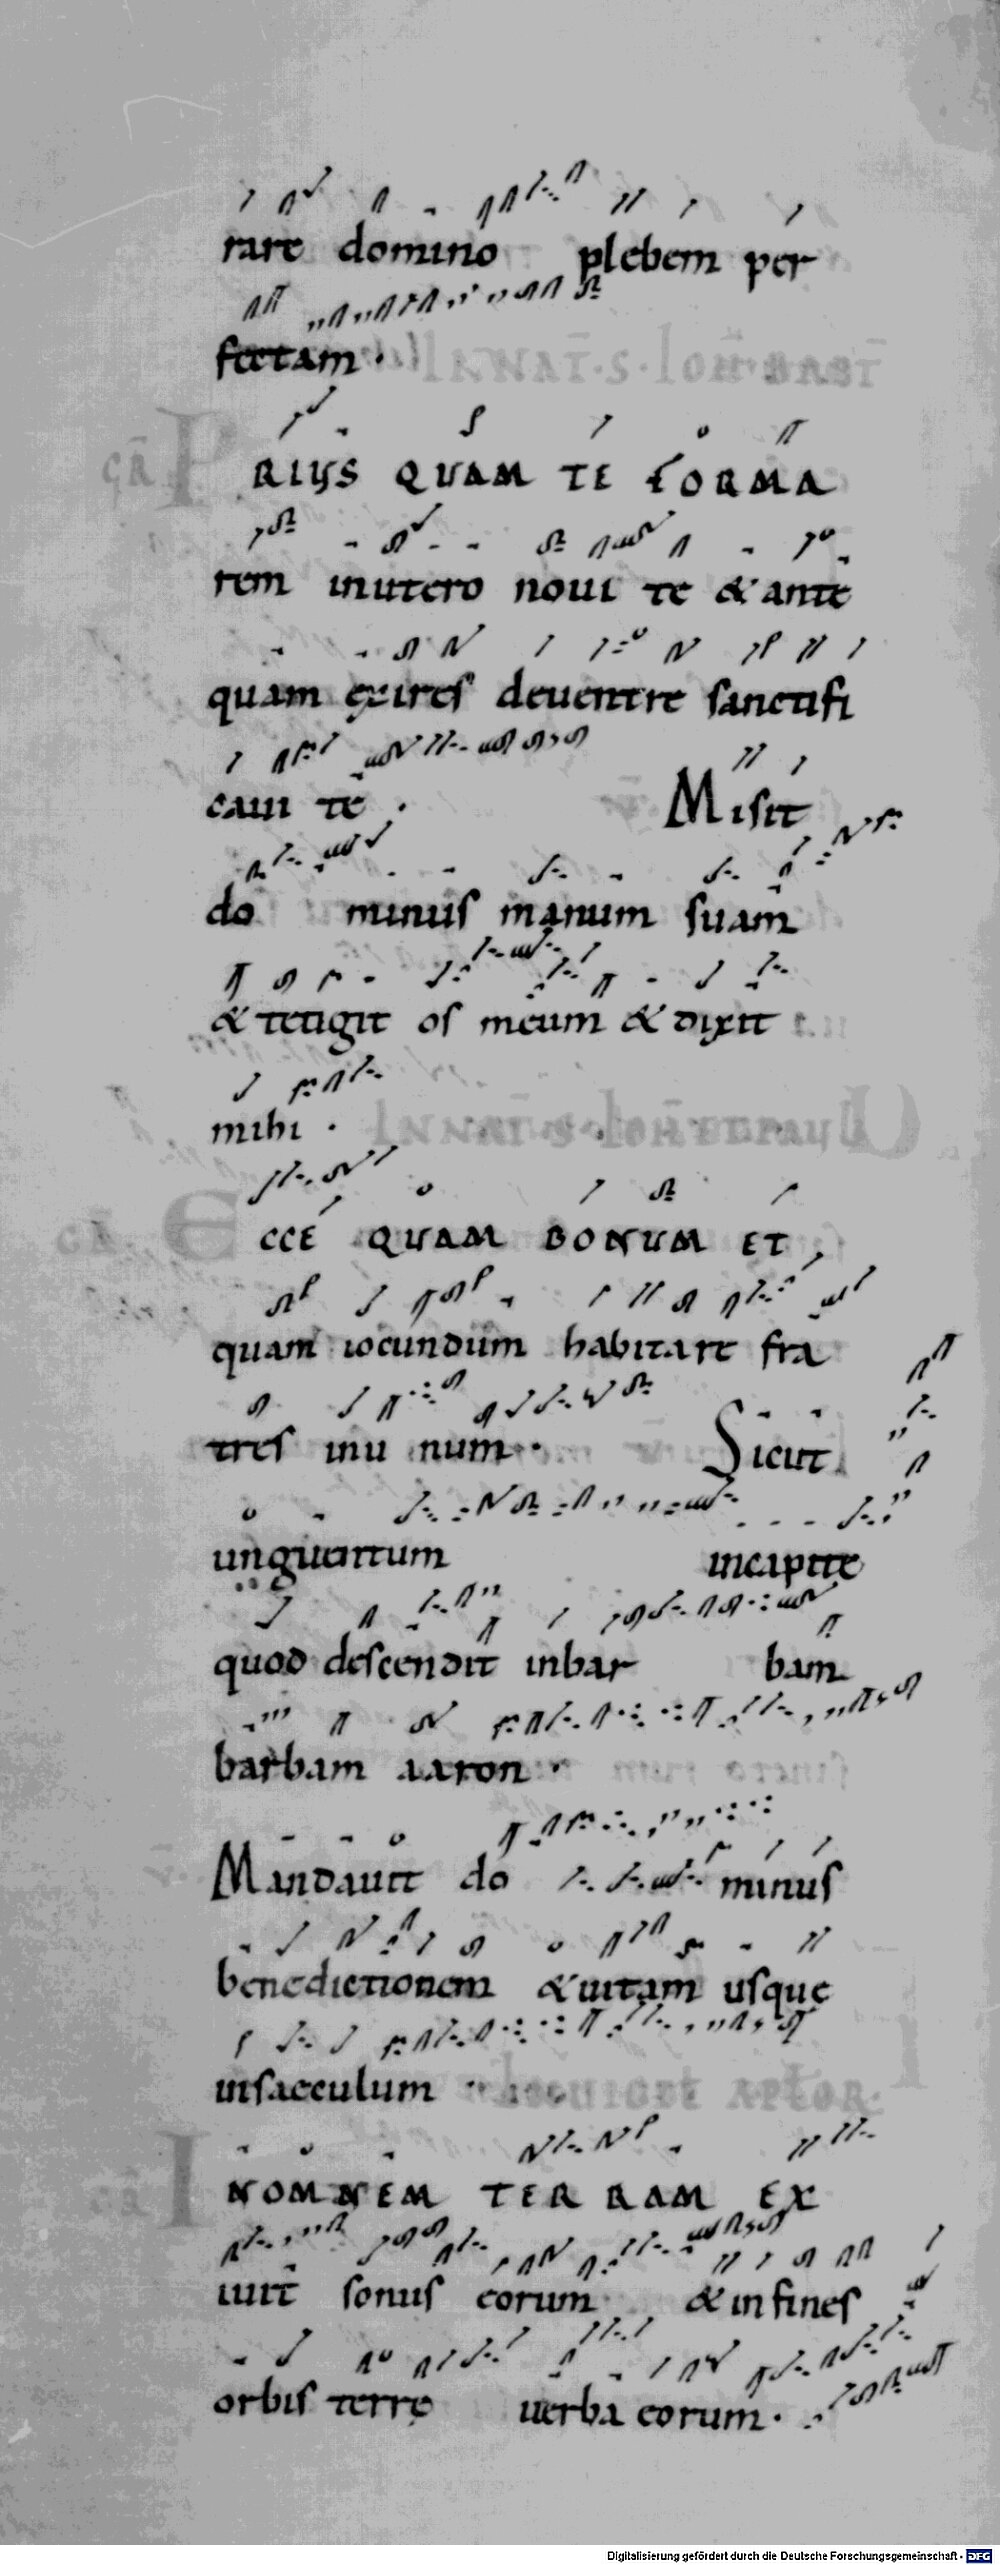 rare domino plebem per
fectam ·
IN NAT̄ · S · IOH̄ · BAPT̄
GR̄ PRIUS QUAM TE FORMA
rem inutero noui te & ante
quam exires deuentre sanctifi
caui te · Misit
do minus manum suam
& tetigit os meum & dixit
mihi ·
IN NAT̄ · S · IOH̄ ET PAULI
GR̄ ECCE QUAM BONUM ET
quam iocundum habitare fra
tres inu num · Sicut
unguentum incapite
quod descendit inbar bam
barbam aaron ·
Mandauit do minus
benedictionem & uitam usque
insaeculum
GR̄ IN OMNEM TERRAM EX
iuit sonus eorum & in fines
orbis terrę uerba eorum ·
Digitalisierung gefördert durch die Deutsche Forschungsgemeinschaft - DFG